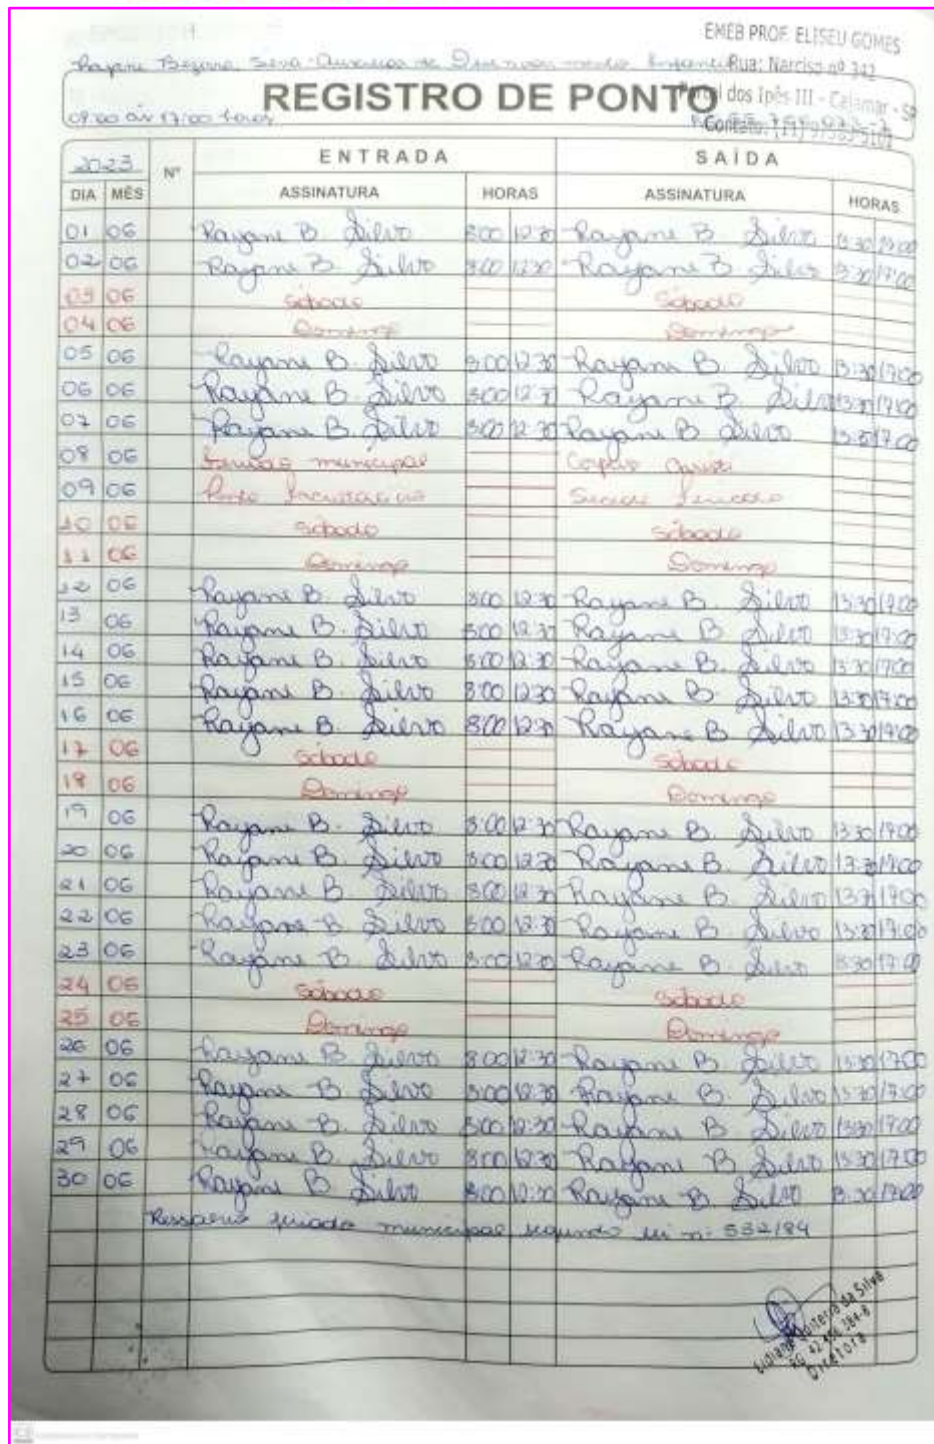 EMEB PROF. ELISEU GOMES
Rayane Bezerra Silva Auxiliar de Rua: Narciso nº 342
dos Ipês III - Cajamar - SP
REGISTRO DE PONTO
08:00 às 17:00 horas Contato: (11)
2023 Nº ENTRADA SAÍDA
DIA MÊS ASSINATURA HORAS ASSINATURA HORAS
01 06 Rayane B Silva 8:00 12:30 Rayane B Silva 13:30 17:00
02 06 Rayane B. Silva 8:00 12:30 Rayane B Silva 13:30 17:00
03 06 Sábado Sábado
04 06 Domingo Domingo
05 06 Rayane B. Silva 8:00 12:30 Rayane B. Silva 13:30 17:00
06 06 Rayane B. Silva 8:00 12:30 Rayane B. Silva 13:30 17:00
07 06 Rayane B. Silva 8:00 12:30 Rayane B Silva 13:30 17:00
08 06 municipal Corpus Christi
09 06 Ponto Facultativo
10 06 Sábado Sábado
11 06 Domingo Domingo
12 06 Rayane B. Silva 8:00 12:30 Rayane B. Silva 13:30 17:00
13 06 Rayane B. Silva 8:00 12:30 Rayane B Silva 13:30 17:00
14 06 Rayane B. Silva 8:00 12:30 Rayane B. Silva 13:30 17:00
15 06 Rayane B. Silva 8:00 12:30 Rayane B. Silva 13:30 17:00
16 06 Rayane B. Silva 8:00 12:30 Rayane B Silva 13:30 17:00
17 06 Sábado Sábado
18 06 Domingo Domingo
19 06 Rayane B. Silva 8:00 12:30 Rayane B. Silva 13:30 17:00
20 06 Rayane B. Silva 8:00 12:30 Rayane B. Silva 13:30 17:00
21 06 Rayane B. Silva 8:00 12:30 Rayane B. Silva 13:30 17:00
22 06 Rayane B Silva 8:00 12:30 Rayane B. Silva 13:30 17:00
23 06 Rayane B. Silva 8:00 12:30 Rayane B. Silva 13:30 17:00
24 06 Sábado Sábado
25 06 Domingo Domingo
26 06 Rayane B Silva 8:00 12:30 Rayane B Silva 13:30 17:00
27 06 Rayane B Silva 8:00 12:30 Rayane B. Silva 13:30 17:00
28 06 Rayane B. Silva 8:00 12:30 Rayane B Silva 13:30 17:00
29 06 Rayane B. Silva 8:00 12:30 Rayane B Silva 13:30 17:00
30 06 Rayane B Silva 8:00 12:30 Rayane B. Silva 13:30 17:00
municipal segundo lei nº 532/84
da Silva
RG
Diretora